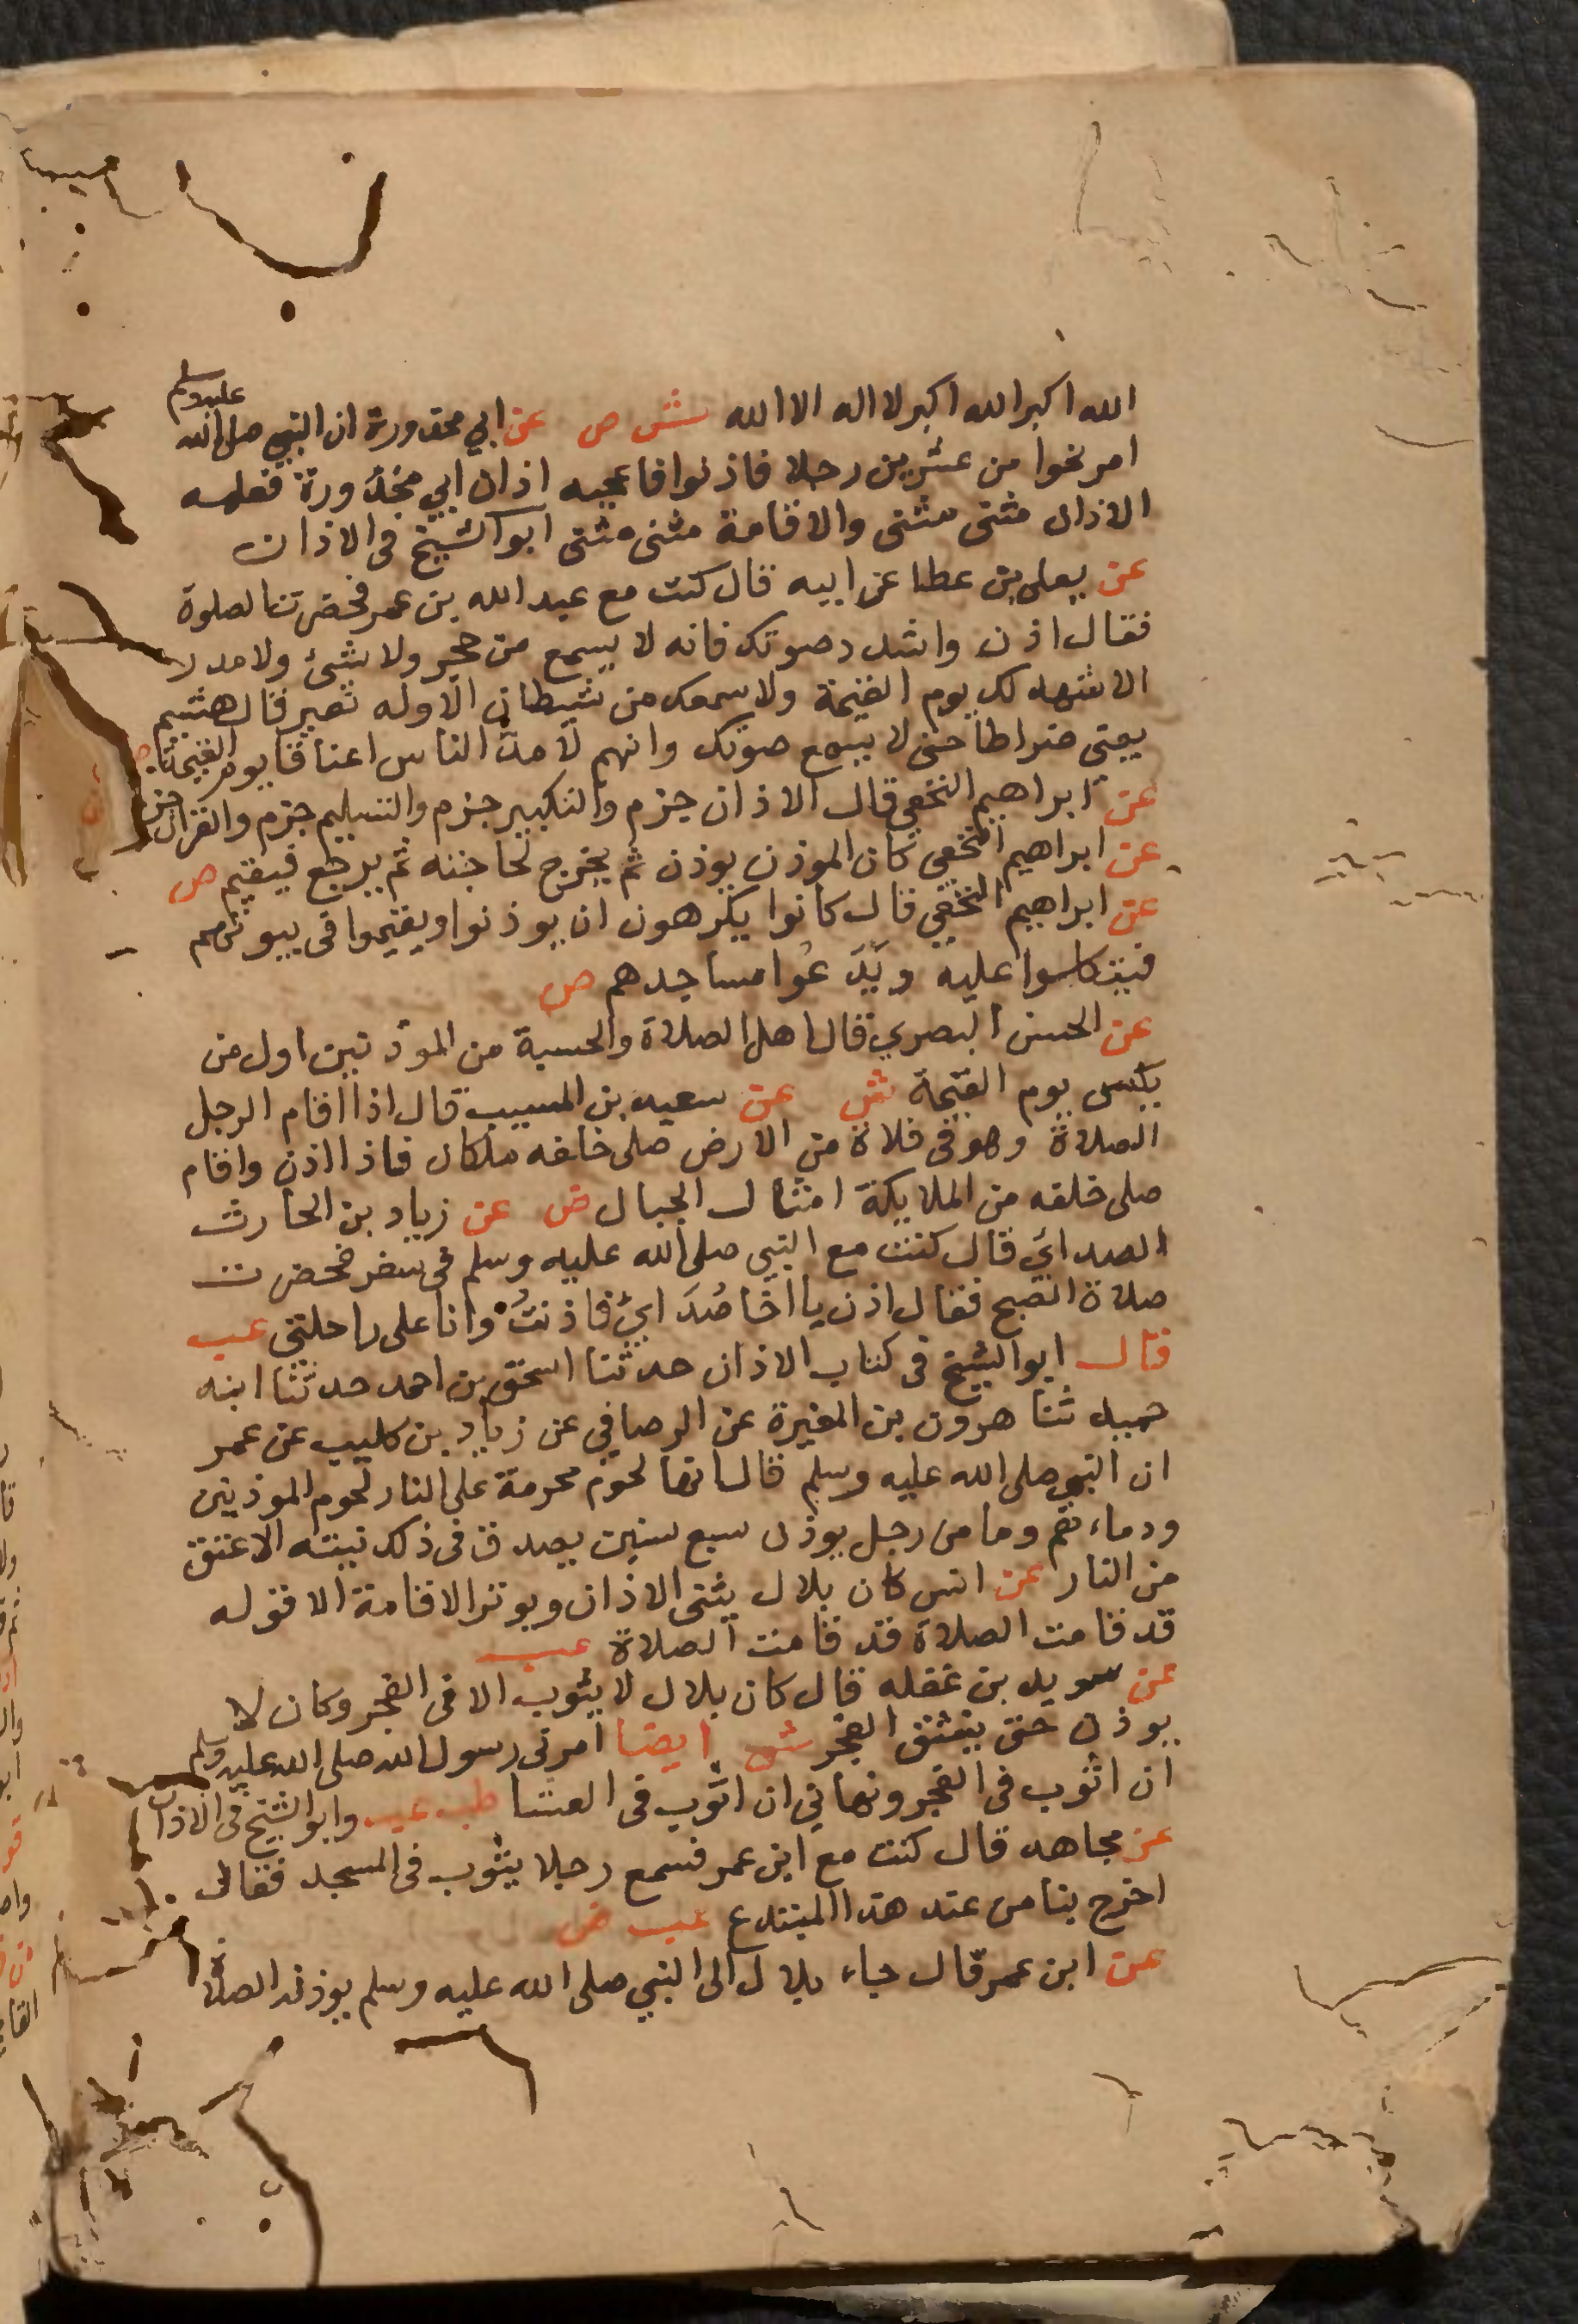 الله اكبر الله اكبر لا اله الا الله ش ص عن ابي محذورة ان النبي صلى الله عليه وسلم
امر نحوا من عشرين رجلا فاذنوا فاعجبه اذان ابي محذورة فعلمه
الاذان مثنى مثنى والاقامة مثنى مثنى ابو الشيخ فى الاذان
عن يعلى بن عطا عن ابيه قال كنت مع عبد الله بن عمر فحضرتنا الصلوة
فقال اذن واشدد صوتك فانه لا يسمع من حجر ولا شئ ولا مدر
الا شهد لك يوم القيمة ولا سمعك من شيطان الا وله نفير قال هشيم
يعنى ضراطا حتى لا يسمع صوتك وانهم لامد الناس اعناقا يوم القيمة ص
عن ابراهيم النخعي قال الاذان جزم والتكبير جزم والتسليم جزم والقران جزم
عن ابراهيم النخعي كان الموذن يوذن ثم يخرج لحاجته ثم يرجع فيقيم ص
عن ابراهيم النخعي قال كانوا يكرهون ان يوذنوا ويقيموا فى بيوتهم
فيتكلسوا عليه ويَدَعُوا مساجدهم ص
عن الحسن البصري قال اهل الصلاة والحسبة من الموذنين اول من
يكسى يوم القيمة ش عن سعيد بن المسيب قال اذا اقام الرجل
الصلاة وهو فى فلاة من الارض صلى خلفه ملكان فاذا اذن واقام
صلى خلفه من الملايكة امثال الجبال ض عن زياد بن الحارث
الصدائي قال كنت مع النبي صلى الله عليه وسلم فى سفر فحضرت
صلاة الصبح فقال اذن يا اخا صُدَائي فاذنتُ وانا على راحلتى عب
قال ابو الشيخ فى كتاب الاذان حدثنا اسحق بن احمد حدثنا ابنه
حميد ثنا هرون بن المغيرة عن الرصافي عن زياد بن كليب عن عمر
ان النبي صلى الله عليه وسلم قال انها لحوم محرمة على النار لحوم الموذنين
ودماءهم وما من رجل يوذن سبع سنين يصدق فى ذلك نيته الا عتق
من النار عن انس كان بلال يثنى الاذان ويوتر الاقامة الا قوله
قد قامت الصلاة قد قامت الصلاة عب
عن سويد بن غفله قال كان بلال لا يثوب الا فى الفجر وكان لا
يوذن حتى ينشق الفجر ش ايضا امرنى رسول الله صلى الله عليه وسلم
ان اثوب فى الفجر ونهاني ان اثوب فى العشا طب عب وابو الشيخ فى الاذان
عن مجاهد قال كنت مع ابن عمر فسمع رجلا يثوب فى المسجد فقال
اخرج بنا من عند هذا المبتدع عب ض
عن ابن عمر قال جاء بلال الى النبي صلى الله عليه وسلم يوذنه الصلاة